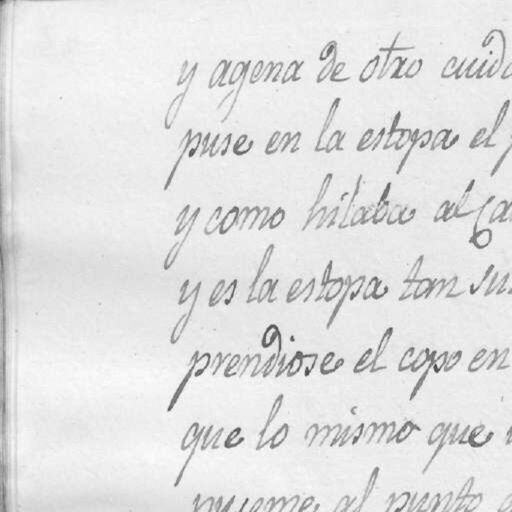 y agena de otro cuida
puse en la estopa el
y como hilaba al Ca
y es la estopa tan su
prendiose el copo en
que lo mismo que
al punto